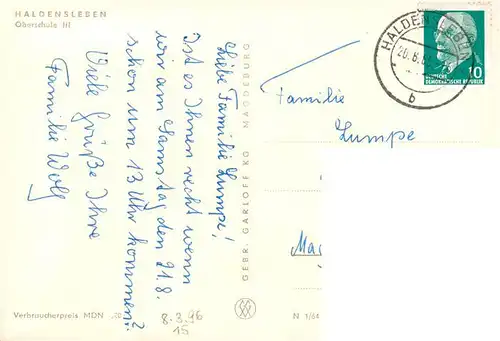 HALDENSLEBEN
Oberschule III
Liebe Familie Lumpe!
Ist es Ihnen recht wenn
wir am Samstag den 21.8.
schon um 13 Uhr kommen?
Viele Grüße Ihre
Familie Wolf
GEBR. GARLOFF KG MAGDEBURG
Verbraucherpreis MDN
8-3.96
15
N 1/64
HALDENSLEBEN
b
10
DEUTSCHE
DEMOKRATISCHE REPUBLIK
Familie
Lumpe